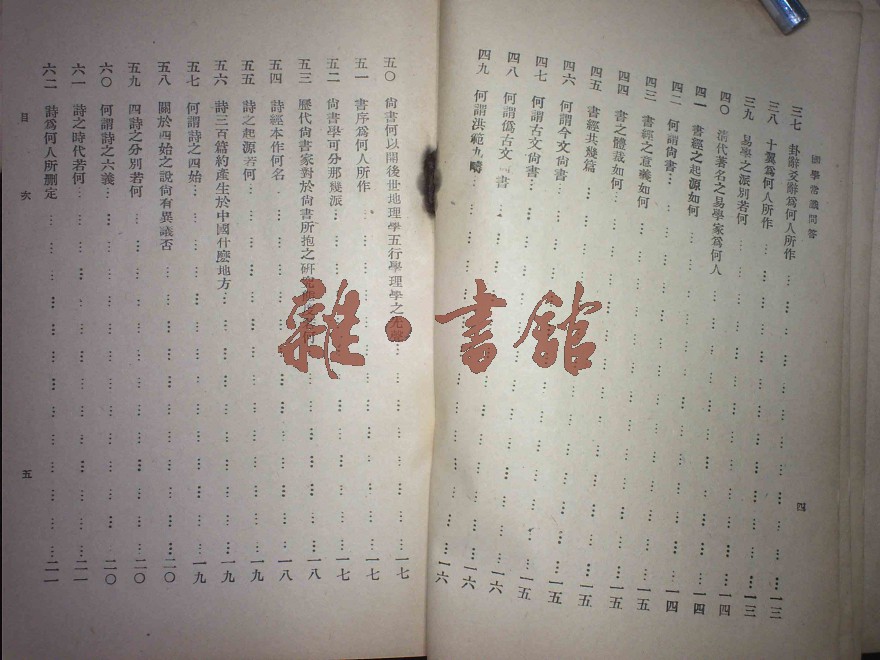 國學常識問答
四
三七 卦辭爻辭爲何人所作……一三
三八 十翼爲何人所作……一三
三九 易學之派別若何……一三
四〇 清代著名之易學家爲何人……一四
四一 書經之起源如何……一四
四二 何謂尚書……一四
四三 書經之意義如何……一五
四四 書之體裁如何……一五
四五 書經共幾篇……一五
四六 何謂今文尚書……一五
四七 何謂古文尚書……一五
四八 何謂僞古文 書……一六
四九 何謂洪範九疇……一六
五〇 尚書何以開後世地理學五行學理學之先聲……一七
五一 書序爲何人所作……一七
五二 尚書學可分那幾派……一七
五三 歷代尚書家對於尚書所抱之研究……一八
五四 詩經本作何名……一八
五五 詩之起源若何……一九
五六 詩三百篇約產生於中國什麽地方……一九
五七 何謂詩之四始……一九
五八 關於四始之說尚有異議否……二〇
五九 四詩之分別若何……二〇
六〇 何謂詩之六義……二〇
六一 詩之時代若何……二一
六二 詩爲何人所刪定……二一
目次
五
雜·書館